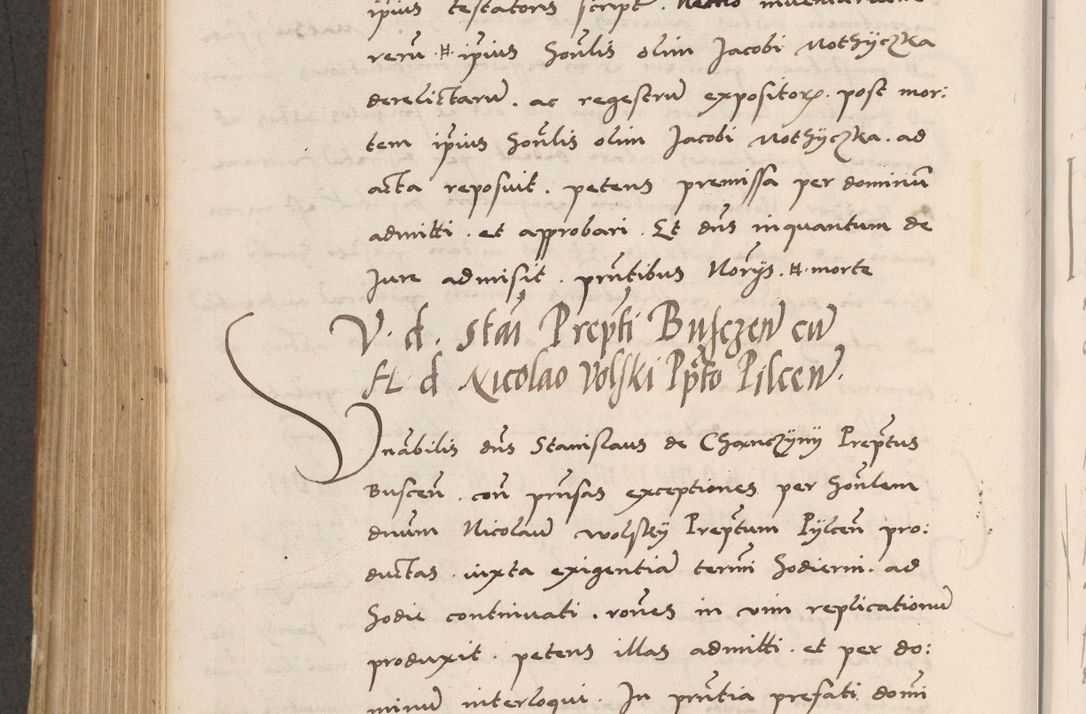 ipius testatoris script.
rerū # ipīus hoñlis olim Jacobi Nothyczka
derelictarū . ac regestrū expositorꝝ . post mor:
tem ipīus hoñlis olim Jacobi Nothyczka . ad
acta reposuit . petens premissa per dominū
admitti . et approbari . Et dn̄s inquantum de
Jure admisit . pn̄tibus Norijs . # morte
V. d. Stāi Prepti Busczeñ cū
d Nicolao Wolski Ppto Pilceñ.
Vnābilis dn̄s Stanislaus de Charnczyny Prept̄us
Busceñ . con pn̄sas exceptiones per hoñlem
dnūm Nicolaū Wolsky Prept̄um Pylceñ pro:
ductas iuxta exigentiā termi hodierni . ad
hodie continuati . rōnes in vim replicationū
produxit . petens illas admitti . et per do:
minū interloqui . In pn̄tia prefati domi